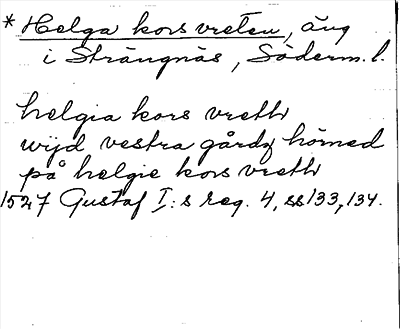 * Helga kors vreten, äng
i Strängnäs, Söderm. l.
helgia kors vretth
wijd vestra gårdz hörned
på helgie kors vretth
1527 Gustaf I:s reg. 4, ss 133, 134.